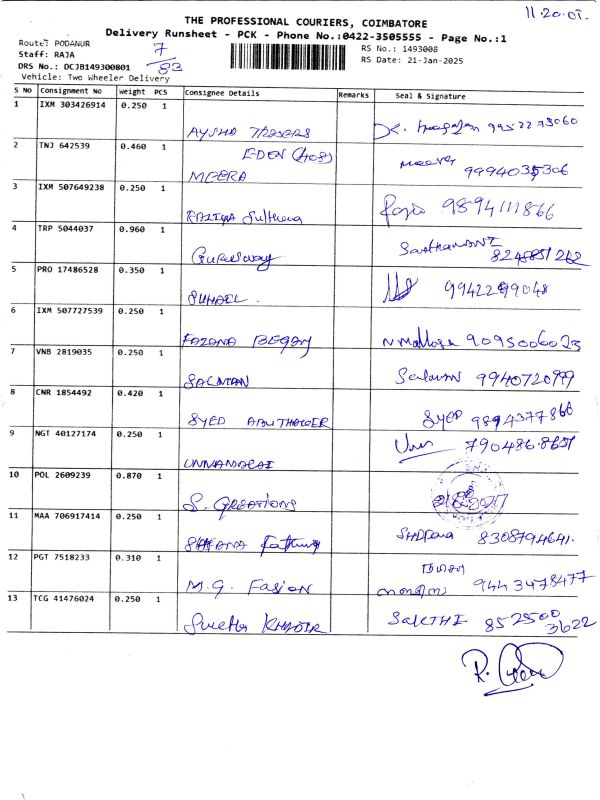 11.20.01.
THE PROFESSIONAL COURIERS, COIMBATORE
Delivery Runsheet - PCK - Phone No.:0422-3505555 - Page No.:1
Route: PODANUR
7
RS No.: 1493008
Staff: RAJA
RS Date: 21-Jan-2025
DRS No.: DCJB149300801
83
Vehicle: Two Wheeler Delivery
S No Consignment No Weight PCS Consignee Details Remarks Seal & Signature
1 IXM 303426914 0.250 1
AYSHA 99522 73060
2 TNJ 642539 0.460 1 EDEN (408)
MEERA 9994035306
3 IXM 507649238 0.250 1
9894111866
4 TRP 5044037 0.960 1
8248851262
5 PRO 17486528 0.350 1
SUHAEL. 9942299048
6 IXM 507727539 0.250 1
FAZANA BEGAM 9095006023
7 VNB 2819035 0.250 1
SALMAN Salman 9940720999
8 CNR 1854492 0.420 1
SYED ABUTHAHEER SYED 9894377860
9 NGT 40127174 0.250 1
UNNAMALAI 790486 8651
10 POL 2609239 0.870 1
S. CREATIONS
11 MAA 706917414 0.250 1
Fathima 8308794641.
12 PGT 7518233 0.310 1
M.G. Fasion 9443478477
13 TCG 41476024 0.250 1
SAKTHI 852500
3622
R.